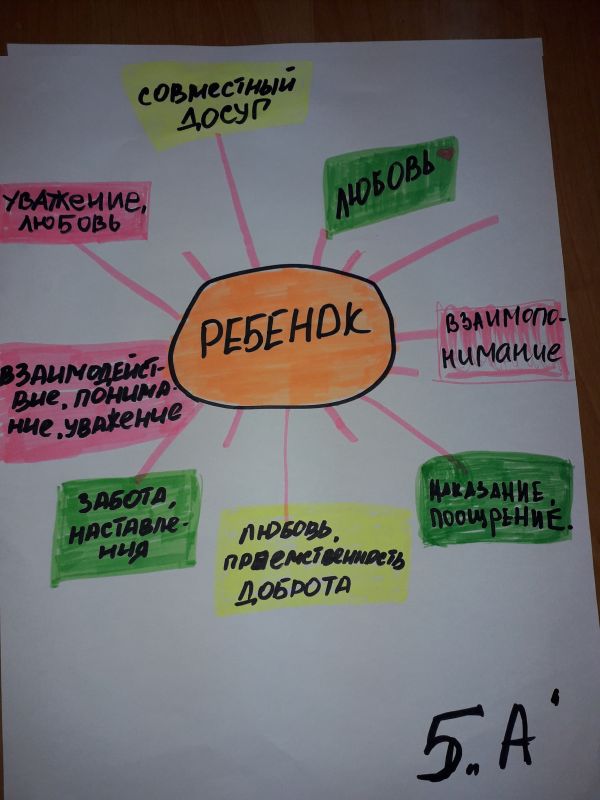 СОВМЕСТНЫЙ
ДОСУГ
ЛЮБОВЬ
УВАЖЕНИЕ,
ЛЮБОВЬ
РЕБЕНОК
ВЗАИМОПО-
НИМАНИЕ
ВЗАИМОДЕЙСТ-
ВИЕ, ПОНИМА-
НИЕ, УВАЖЕНИЕ
ЗАБОТА,
НАСТАВЛЕ-
НИЯ
ЛЮБОВЬ,
ПРЕЕМСТВЕННОСТЬ
ДОБРОТА
НАКАЗАНИЕ,
ПООЩРЕНИЕ.
5 „А"